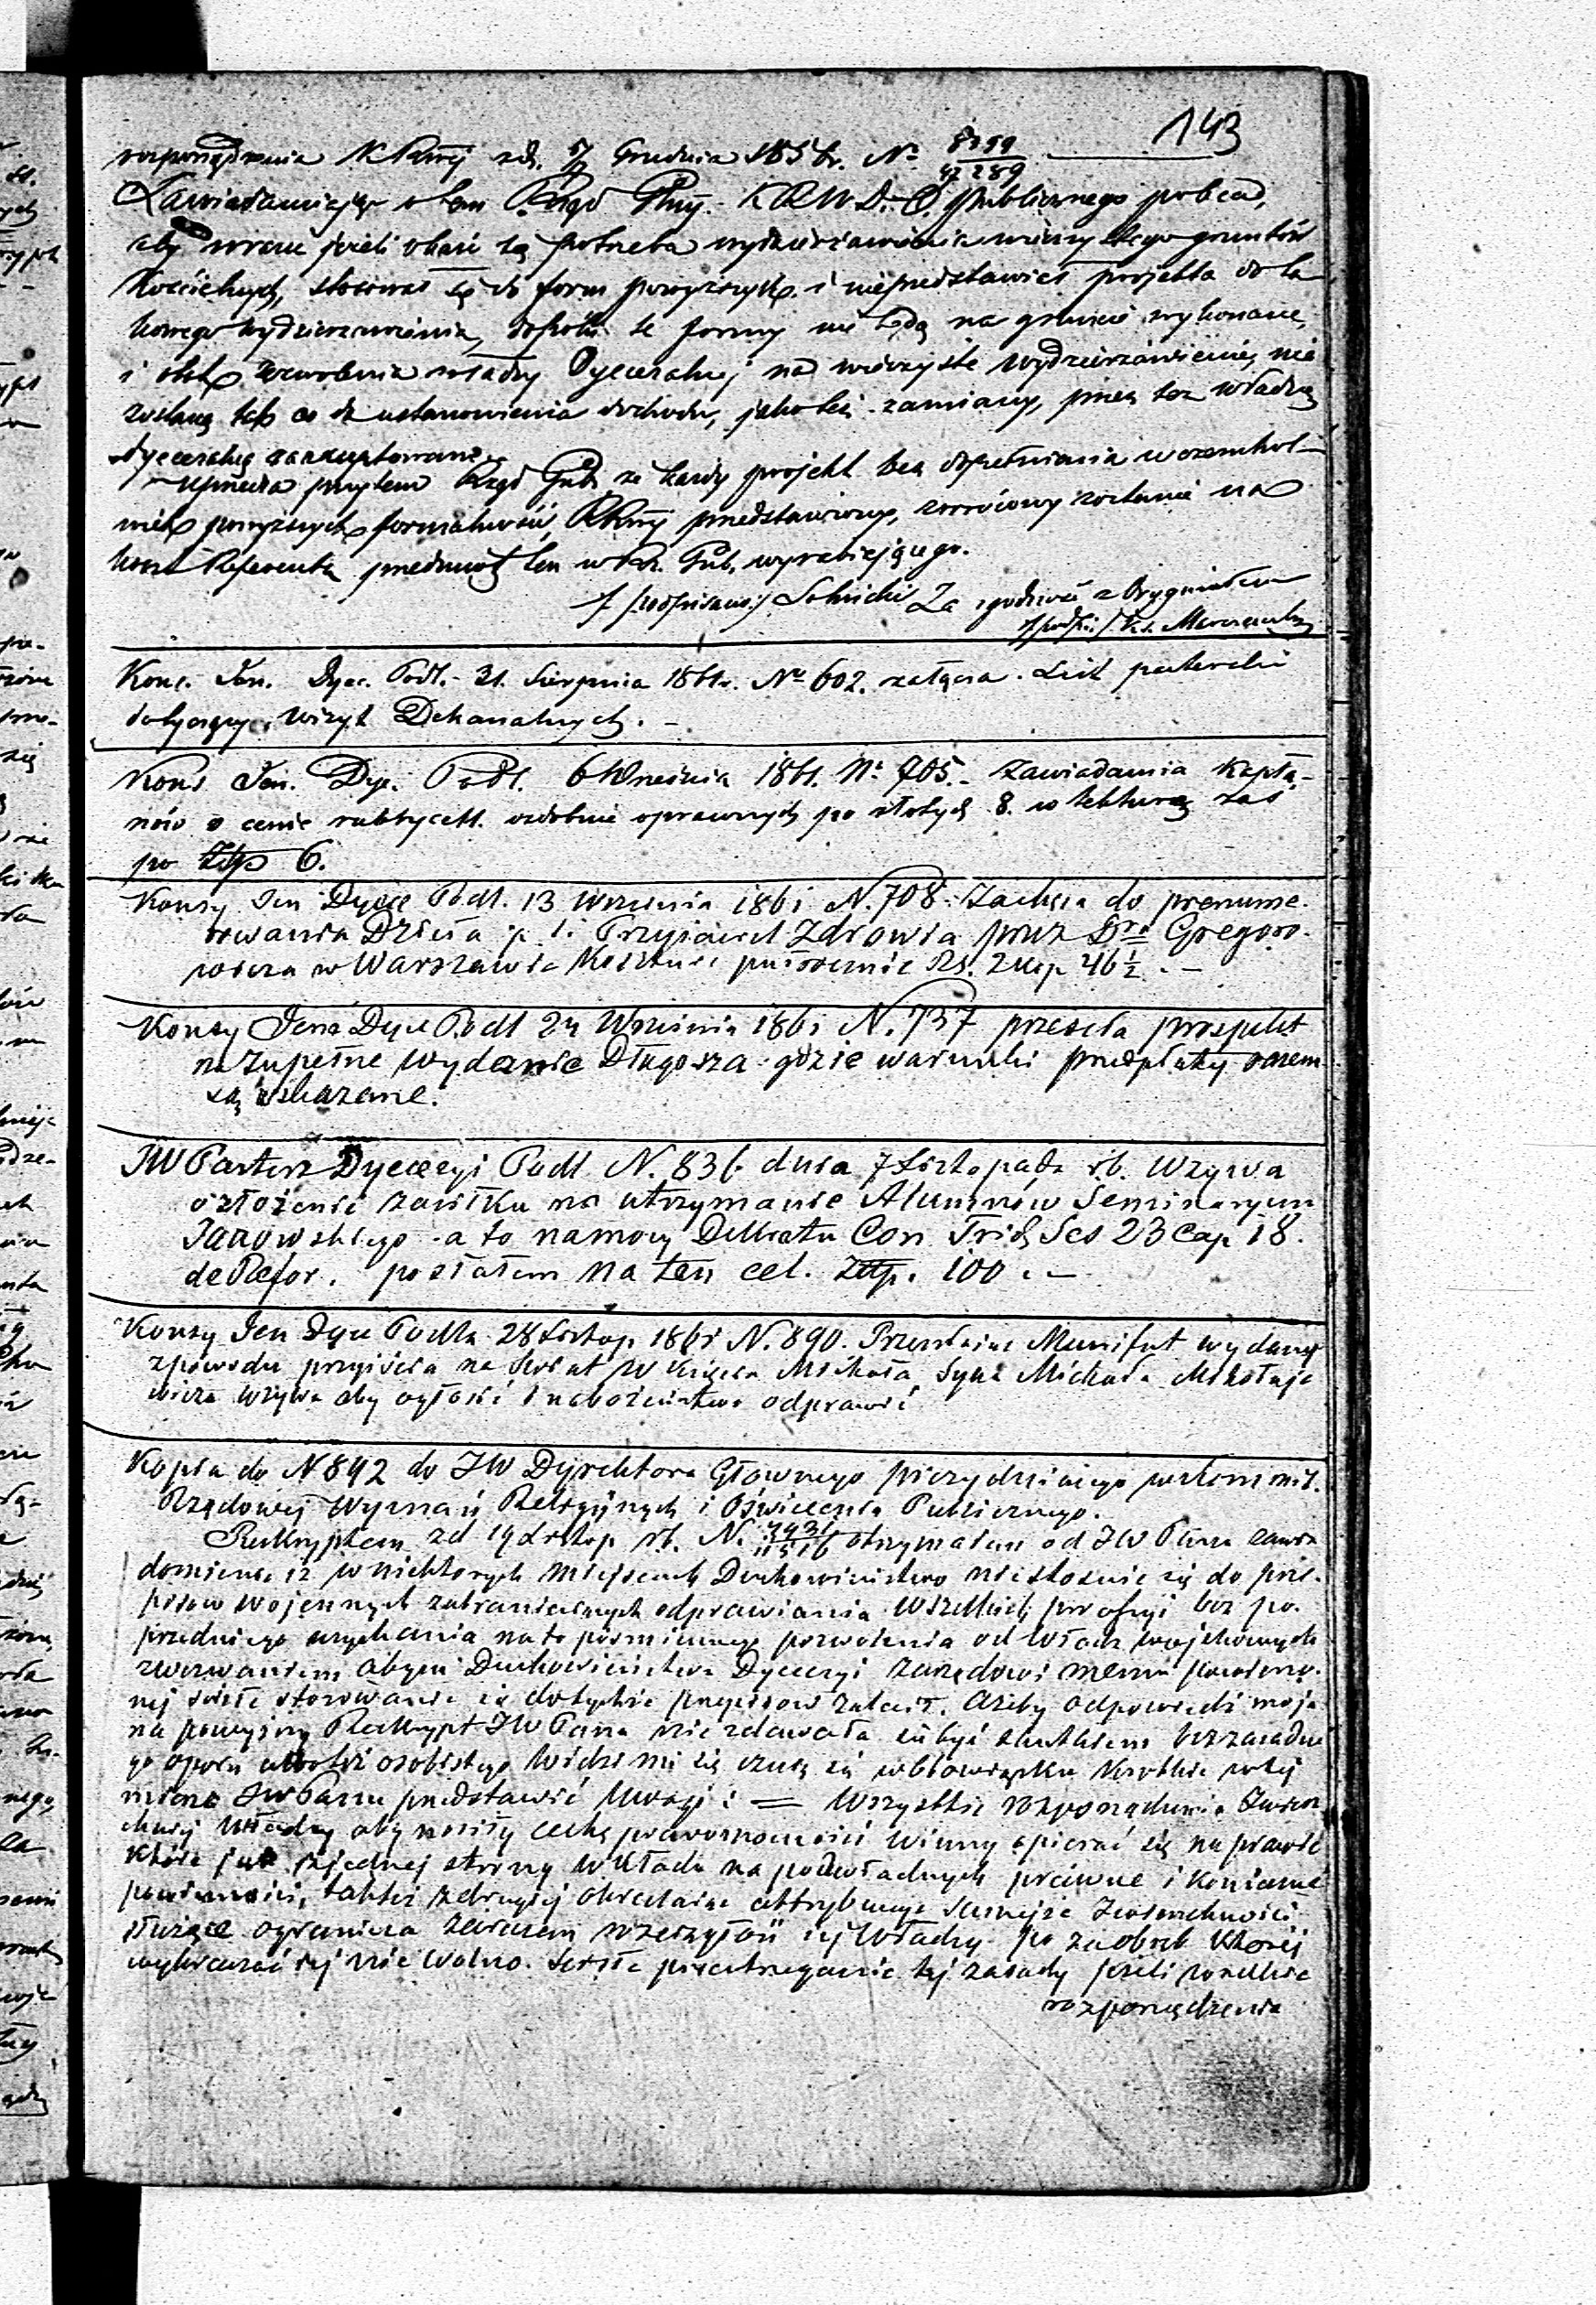 143
rozporządzenia K Rząj zd. 5/17 Grudnia 185 r. No 8399/47289
Zawiadamiając o tem Rząd Gny. K R W. D. O. publicznego poleca,
aby w razie jeżeli okaże się potrzeba wydzierżawienia wieczystego gruntów
Kościelnych, stosować się do form powyższych i nieprzedstawiać projekta do ta
kowego wydzierzawienia, dopóki te formy nie będą na gruncie wykonane,
i obok zezwolenia władzy Dyecezalnej na wieczyste wydzierżawienie, nie
zostaną tak co do ustanowienia dochodu, jako też zamiany, przez tez władzę
dyecezalną zaakceptowane.
Uprzedza przytem Rząd Gub. że każdy projekt bez dopełnienia w czemkol-
wiek powyższych formalności, przedstawiony, zwrócony zostanie na
koszt Referenta przedmiot ten w Rz. Gub. wyrabiającego.
/podpisano/ Za zgodność z Oryginałem
/podpis/ Ks.
Kons. Jen. Dyec. Podl. 31. Sierpnia 1861 r. No 602. załącza List pasterski
dotyczący Wizyt Dekanalnych. –
Kons Jen. Dye. Podl. 6 Września 1861. No 705. – zawiadamia Kapła-
nów o cenie rubrycell. ozdobnie oprawnych po złotych 8. w tekturę zaś
po Złp 6.
Konsy Jen Dyece Podl. 13 Września 1861 N. 708. Zachęca do prenume.
rowania Dzieła p. t. Przyjaciel Zdrowia przez Dra Gregoro-
wicza w Warszawie Kosztuie pułrocznie Rs. 2 kop 46 1/2. –
Konsy Jena Dyec Podl 24 Września 1861 N. 737 przeseła prospekt
na zupełne wydanie Długosza gdzie warunki przedpłaty razem
są wskazane.
JW Pasterz Dyecezyi Podl. N. 836. dnia 7 Listopada r.b. Wzywa
o złożenie zasiłku na utrzymanie Alumnów Seminaryum
Janowskiego - a to na mocy Dekretu Con Trid Ses 23 Cap 18.
de Refor. posłałem na ten cel. Złp. 100. –
Konsy Jen Dyec Podla 28 Listop 1861 N. 890. Przesłaiac Manifest wydany
z powodu przyiścia na Swiat W Xięcia Michała Syna Michała Mikołaje
wicza wzywa aby ogłosić i nabożeństwo odprawić
Kopia do N 892 do JW Dyrektora Głownego prezyduiącego w Kommis.
Rządowej Wyznań Religijnych i Oświecenia Publicznego.
Reskryptem zd 19 Listop rb. N. 7931/11516 otrzymałem od JW Pana zawia
domienie iż w niektorych miejscach Duchowieństwo niestosuie się do prze-
pisow wojennych zabraniaiących odprawiania wszelkich processyi bez po-
przedniego uzyskania na to piśmiennego pozwolenia od Władz wojskowych
z wezwaniem abym Duchowieństwu Dyecezyi zarządowi memu powierzo-
nej ścisłe stosowanie się do tychże przepisow zalecił. Ażeby odpowiedź moja
na powyższy Reskrypt JW Pana nie zdawała się być skutkiem bezzasadne
go oporu albo też osobistego widzi mi się czuię się w obowiązku krotkie w tej
mierze JW Panu przedstawić Uwagi: = Wszystkie rozporządzenia Zwierz
chniej Władzy aby nosiły cechę prawomocności winny opierać się na prawie
które jak z jednej strony wkłada na podwładnych prawne i konieczne
powinności, tak też z drugiej określaiąc attrybucye Zwierzchności
służące ogranicza zarazem rozciągłość iej Władzy po za obręb ktorej
wykraczać iej nie wolno. Scisłe przestrzeganie tej zasady jeżeli wszelkie
rozporządzenia